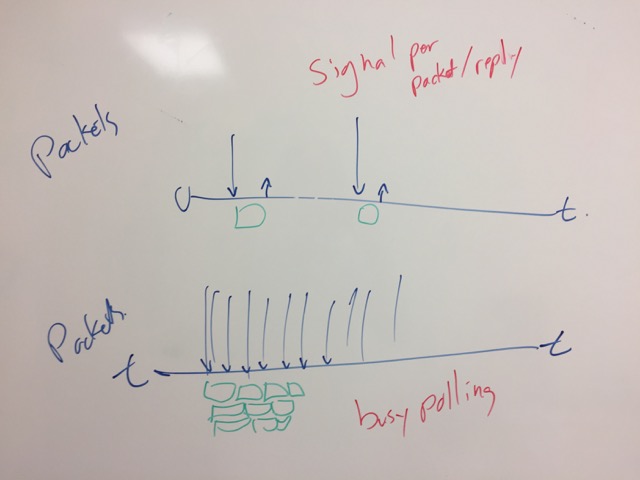 Signal per
packet/reply
Packets
0
t.
Packets
t
t
busy polling